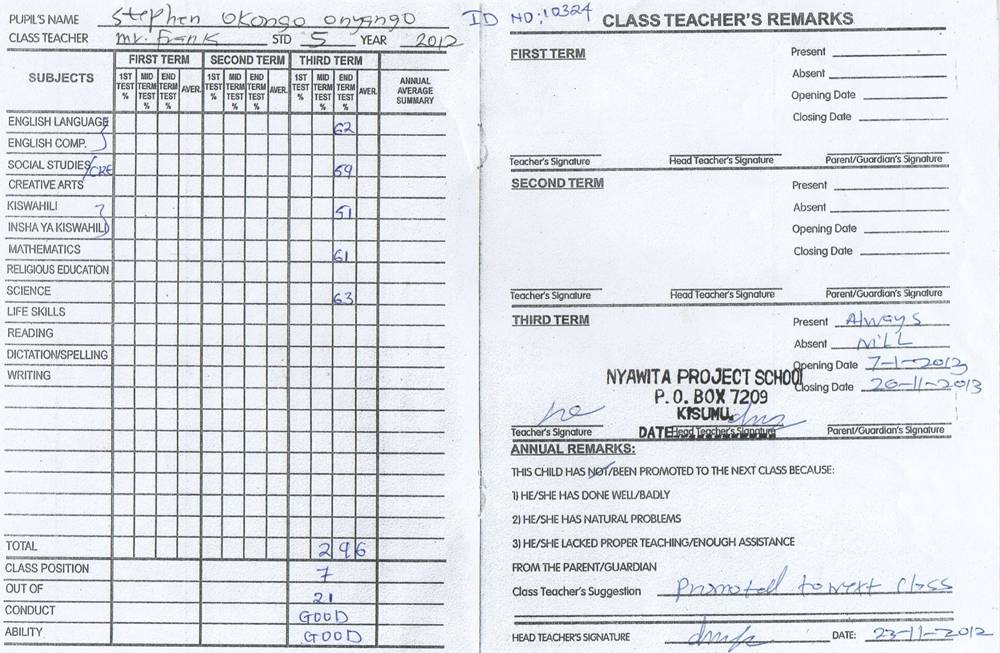 PUPIL'S NAME Stephen Okongo Onyango
CLASS TEACHER Mr. Frank STD 5 YEAR 2012
SUBJECTS FIRST TERM SECOND TERM THIRD TERM ANNUAL AVERAGE SUMMARY
1ST TEST % MID TERM TEST % END TERM TEST % AVER. 1ST TEST % MID TERM TEST % END TERM TEST % AVER. 1ST TEST % MID TERM TEST % END TERM TEST % AVER.
ENGLISH LANGUAGE 62
ENGLISH COMP.
SOCIAL STUDIES/CRE 59
CREATIVE ARTS
KISWAHILI 51
INSHA YA KISWAHILI
MATHEMATICS 61
RELIGIOUS EDUCATION
SCIENCE 63
LIFE SKILLS
READING
DICTATION/SPELLING
WRITING
TOTAL 296
CLASS POSITION 7
OUT OF 21
CONDUCT GOOD
ABILITY GOOD
ID NO: 10324 CLASS TEACHER'S REMARKS
FIRST TERM Present
Absent
Opening Date
Closing Date
Teacher's Signature Head Teacher's Signature Parent/Guardian's Signature
SECOND TERM Present
Absent
Opening Date
Closing Date
Teacher's Signature Head Teacher's Signature Parent/Guardian's Signature
THIRD TERM Present Always
Absent NILL
Opening Date 7-1-2013
NYAWITA PROJECT SCHOOL Closing Date 20-11-2013
P. O. BOX 7209
KISUMU.
Teacher's Signature DATE Head Teacher's Signature Parent/Guardian's Signature
ANNUAL REMARKS:
THIS CHILD HAS NOT/BEEN PROMOTED TO THE NEXT CLASS BECAUSE:
1) HE/SHE HAS DONE WELL/BADLY
2) HE/SHE HAS NATURAL PROBLEMS
3) HE/SHE LACKED PROPER TEACHING/ENOUGH ASSISTANCE
FROM THE PARENT/GUARDIAN
Class Teacher's Suggestion Promoted to next class
HEAD TEACHER'S SIGNATURE DATE: 23-11-2012